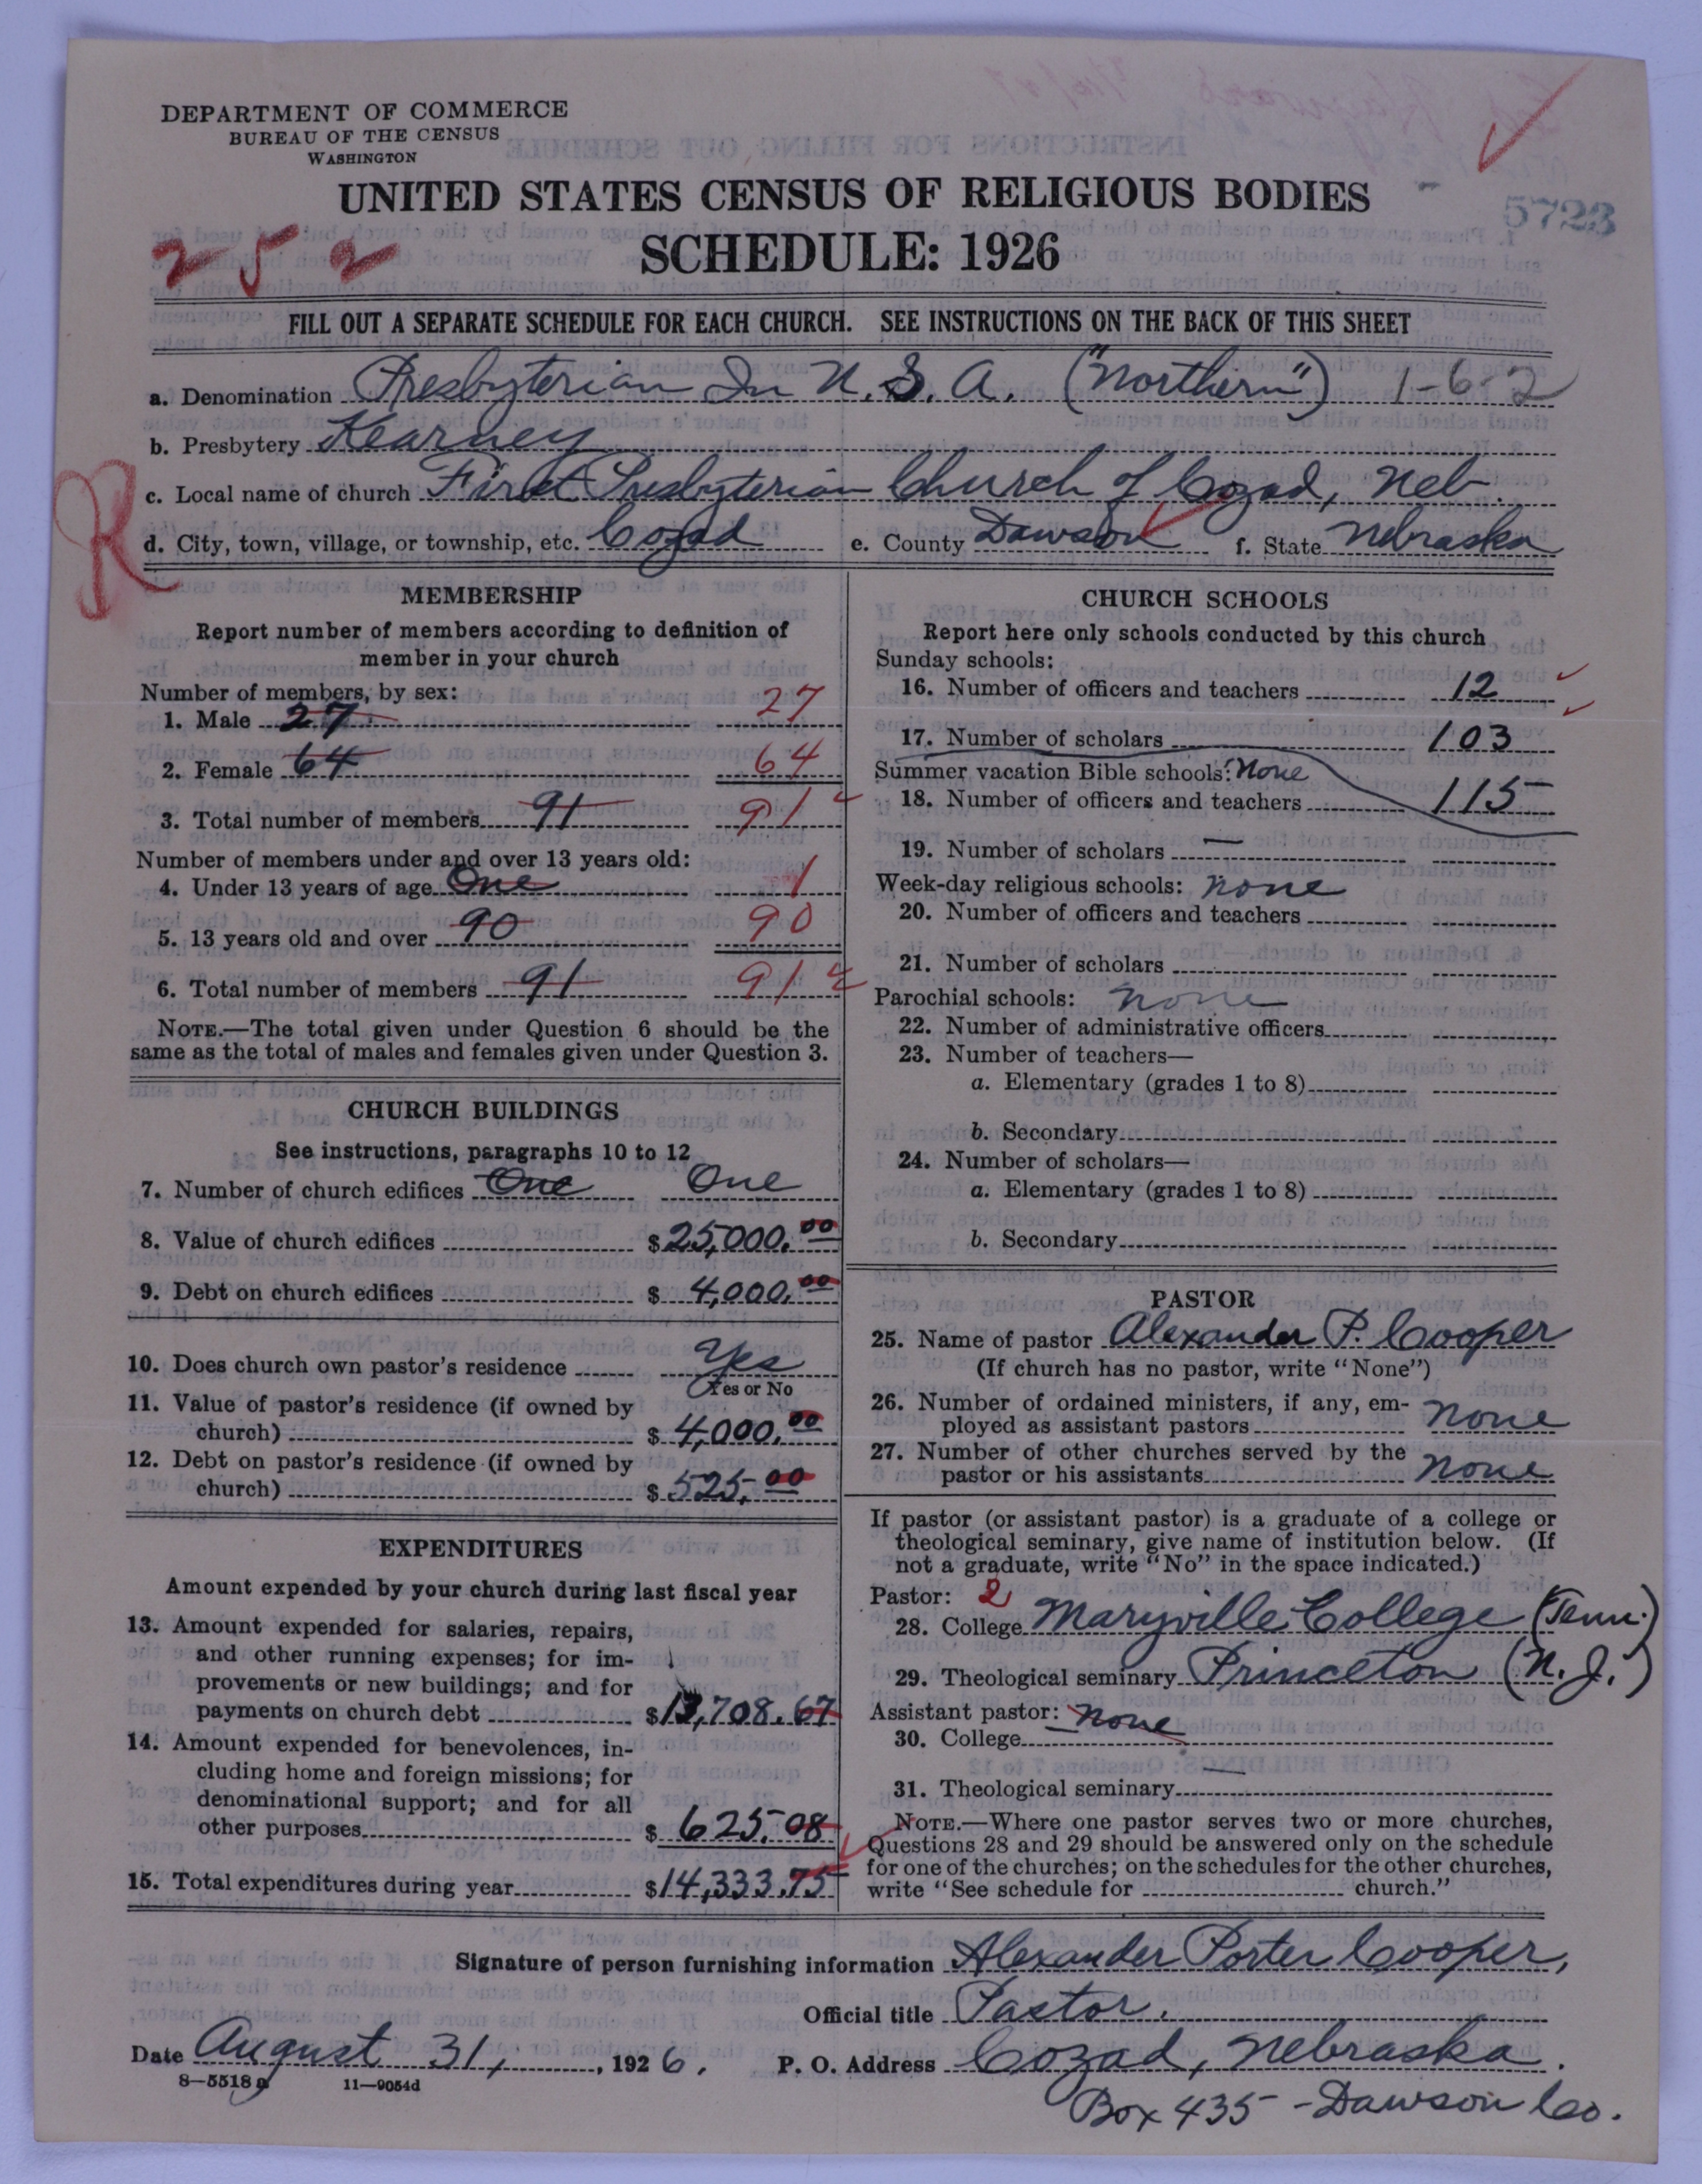 DEPARTMENT OF COMMERCE
BUREAU OF THE CENSUS
WASHINGTON
UNITED STATES CENSUS OF RELIGIOUS BODIES
5723
252
SCHEDULE: 1926
FILL OUT A SEPARATE SCHEDULE FOR EACH CHURCH. SEE INSTRUCTIONS ON THE BACK OF THIS SHEET
a. Denomination Presbyterian In U.S.A. ("Northern") 1-6-2
b. Presbytery Kearney
c. Local name of church First Presbyterian Church of Cozad, Neb.
R
d. City, town, village, or township, etc. Cozad e. County Dawson f. State Nebraska
MEMBERSHIP
Report number of members according to definition of
member in your church
Number of members, by sex:
1. Male 27 27
2. Female 64 64
3. Total number of members 91 91
Number of members under and over 13 years old:
4. Under 13 years of age One 1
5. 13 years old and over 90 90
6. Total number of members 91 91
NOTE.—The total given under Question 6 should be the
same as the total of males and females given under Question 3.
CHURCH BUILDINGS
See instructions, paragraphs 10 to 12
7. Number of church edifices One One
8. Value of church edifices $25,000.00
9. Debt on church edifices $4,000.00
10. Does church own pastor's residence Yes
Yes or No
11. Value of pastor's residence (if owned by
church) $4,000.00
12. Debt on pastor's residence (if owned by
church) $525.00
EXPENDITURES
Amount expended by your church during last fiscal year
13. Amount expended for salaries, repairs,
and other running expenses; for im-
provements or new buildings; and for
payments on church debt $13,708.67
14. Amount expended for benevolences, in-
cluding home and foreign missions; for
denominational support; and for all
other purposes $625.08
15. Total expenditures during year $14,333.75
CHURCH SCHOOLS
Report here only schools conducted by this church
Sunday schools:
16. Number of officers and teachers 12
17. Number of scholars 103
Summer vacation Bible schools: None
18. Number of officers and teachers 115
19. Number of scholars —
Week-day religious schools: None
20. Number of officers and teachers
21. Number of scholars
Parochial schools: None
22. Number of administrative officers
23. Number of teachers—
a. Elementary (grades 1 to 8)
b. Secondary
24. Number of scholars—
a. Elementary (grades 1 to 8)
b. Secondary
PASTOR
25. Name of pastor Alexander P. Cooper
(If church has no pastor, write "None")
26. Number of ordained ministers, if any, em-
ployed as assistant pastors None
27. Number of other churches served by the
pastor or his assistants None
If pastor (or assistant pastor) is a graduate of a college or
theological seminary, give name of institution below. (If
not a graduate, write "No" in the space indicated.)
Pastor: 2
28. College Maryville College (Tenn.)
29. Theological seminary Princeton (N.J.)
Assistant pastor: None
30. College
31. Theological seminary —
NOTE.—Where one pastor serves two or more churches,
Questions 28 and 29 should be answered only on the schedule
for one of the churches; on the schedules for the other churches,
write "See schedule for church."
Signature of person furnishing information Alexander Porter Cooper,
Official title Pastor.
Date August 31, 1926. P. O. Address Cozad, Nebraska.
8—5518a 11—9054d
Box 435 - Dawson Co.